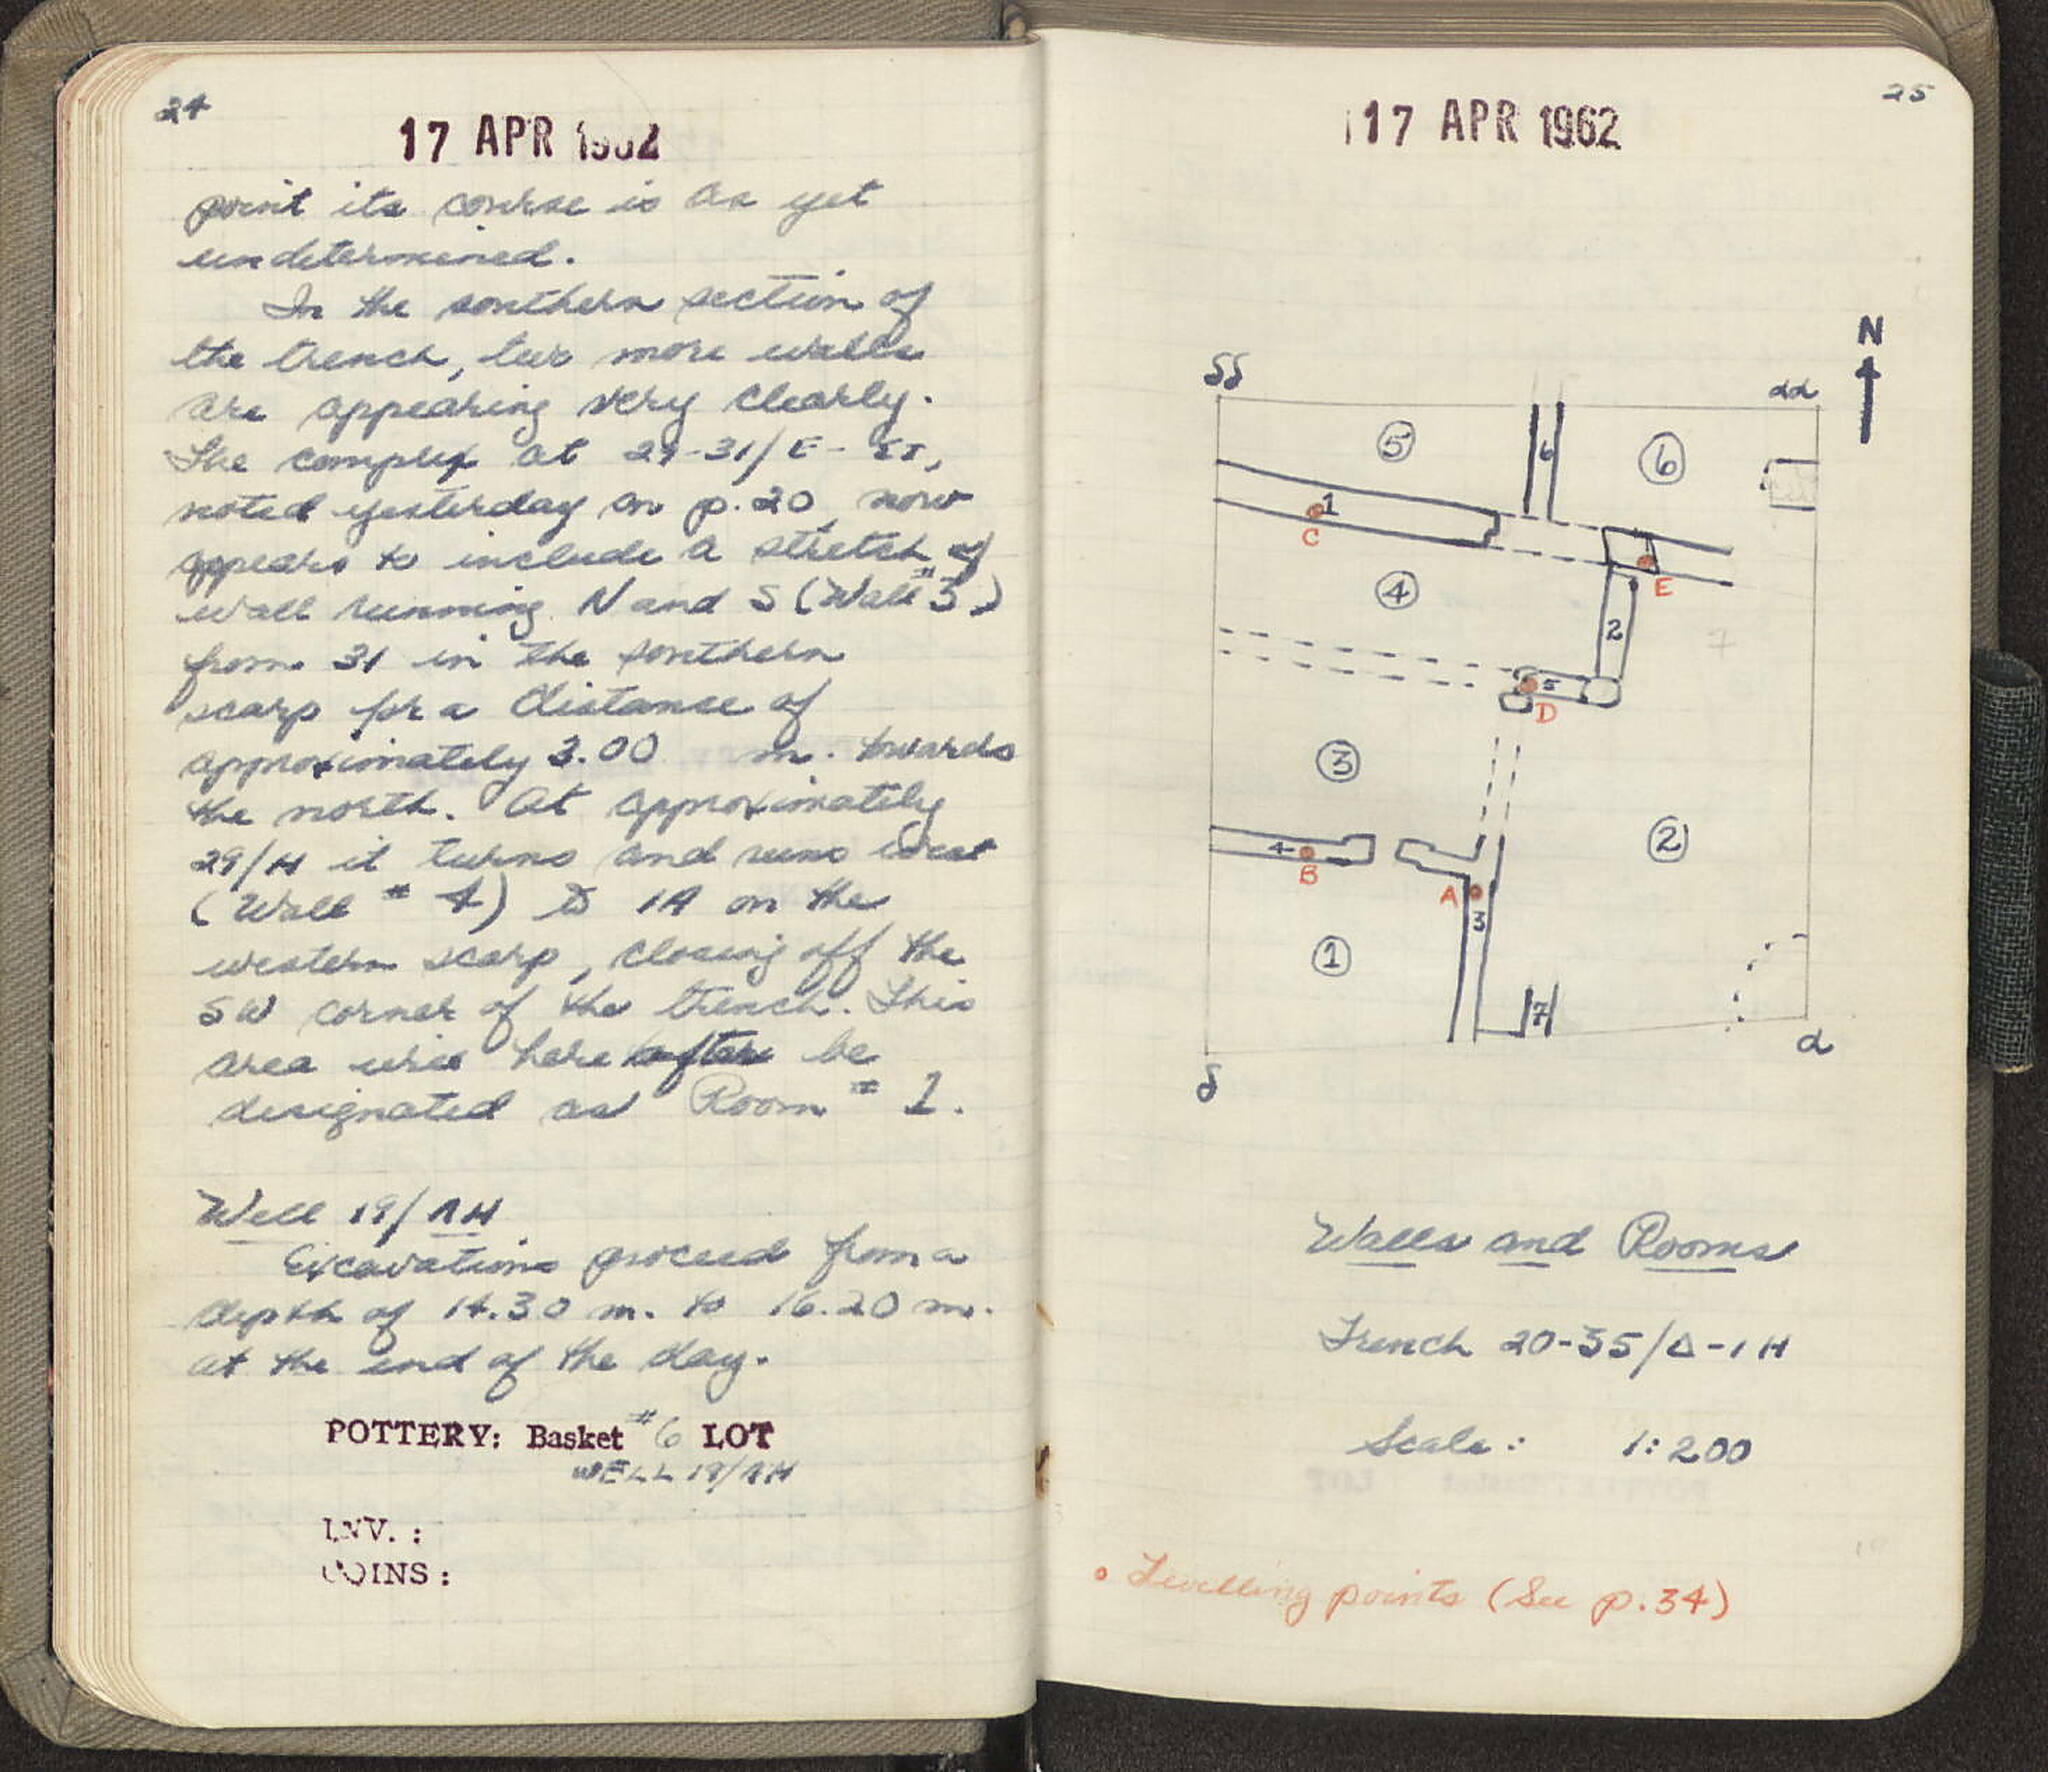 24
17 APR 1962
point its course is as yet
undetermined.
In the southern section of
the trench, two more walls
are appearing very clearly.
The complex at 29-31/E-
noted yesterday on p. 20 now
appears to include a stretch of
wall running N and S (Wall #3)
from 31 in the southern
scarp for a distance of
approximately 3.00 m. towards
the north. At approximately
29/H it turns and runs west
(Wall # 4) to IA on the
western scarp, closing off the
SW corner of the trench. This
area will hereafter be
designated as Room # 1.
Well 19/ΛH
Excavations proceed from a
depth of 14.30 m. to 16.20 m.
at the end of the day.
POTTERY: Basket #6 LOT
WELL 19/ΛH
INV. :
COINS :
25
17 APR 1962
N
δδ
αα
5
6
6
1
C
E
4
2
5
D
3
2
4
B
A
3
1
7
α
δ
7
Walls and Rooms
Trench 20-35/Δ-IH
Scale: 1:200
• Levelling points (See p. 34)